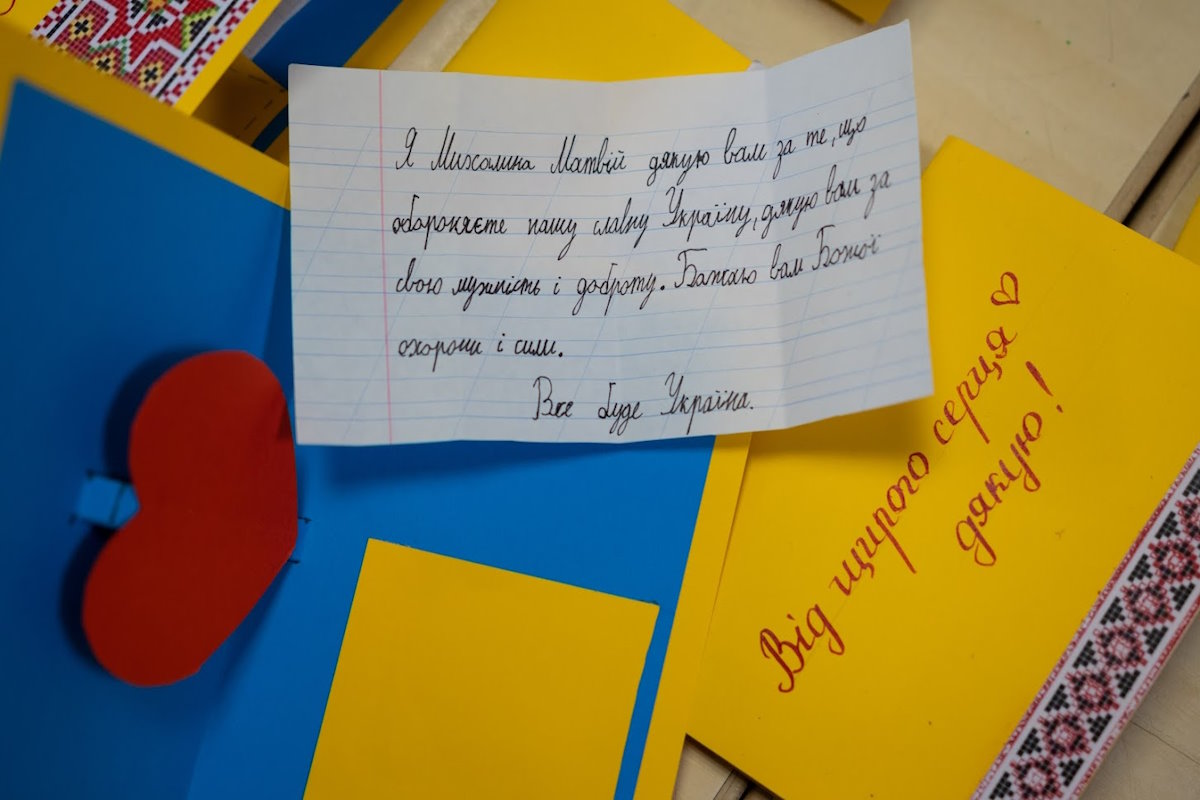 Я Михалина Матвій дякую вам за те, що
обороняєте нашу славну Україну, дякую вам за
свою мужність і доброту. Бажаю вам Божої
охорони і сили.
Все буде Україна.
Від щирого серця ♡
дякую!